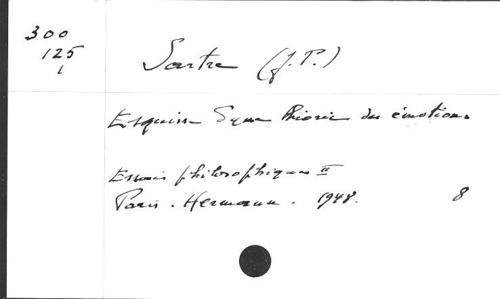 300
125
1
Sartre (J.P.)
Esquisse d'une théorie des émotions
Essais philosophiques II
Paris. Hermann. 1948. 8